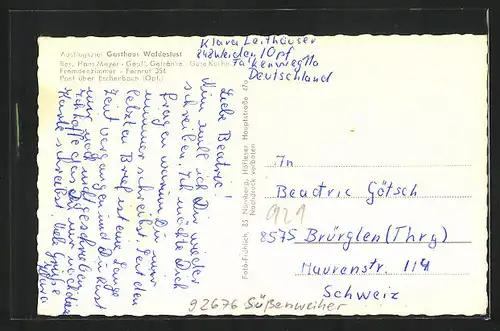 Ausflugsziel Gasthaus Waldeslust
Bes. Hans Meyer - Gepfl. Getränke - Gute Küche
Fremdenzimmer - Fernruf 354
Post über Eschenbach (Opf.)
Klara Leithäuser
848 Weiden/Opf
Falkenweg 11a
Deutschland
Liebe Beatric!
Nun will ich Dir wieder
schreiben. Ich möchte Dich
fragen warum Du mir
nimmer schreibst. Seit den
letzten Brief ist eine lange
Zeit vergangen und Du hast
mir noch nicht geschrieben.
Ich hoffe das Du mir nächstens
Karte schreibst. Viele Grüße
Klara
Foto-Fröhlich, 85 Nürnberg, Höfleser Hauptstraße 67a
Nachdruck verboten
In
Beatric Götsch
921
8575 Brürglen (Thrg)
Maurenstr. 114
Schweiz
92676 Süßenweiher